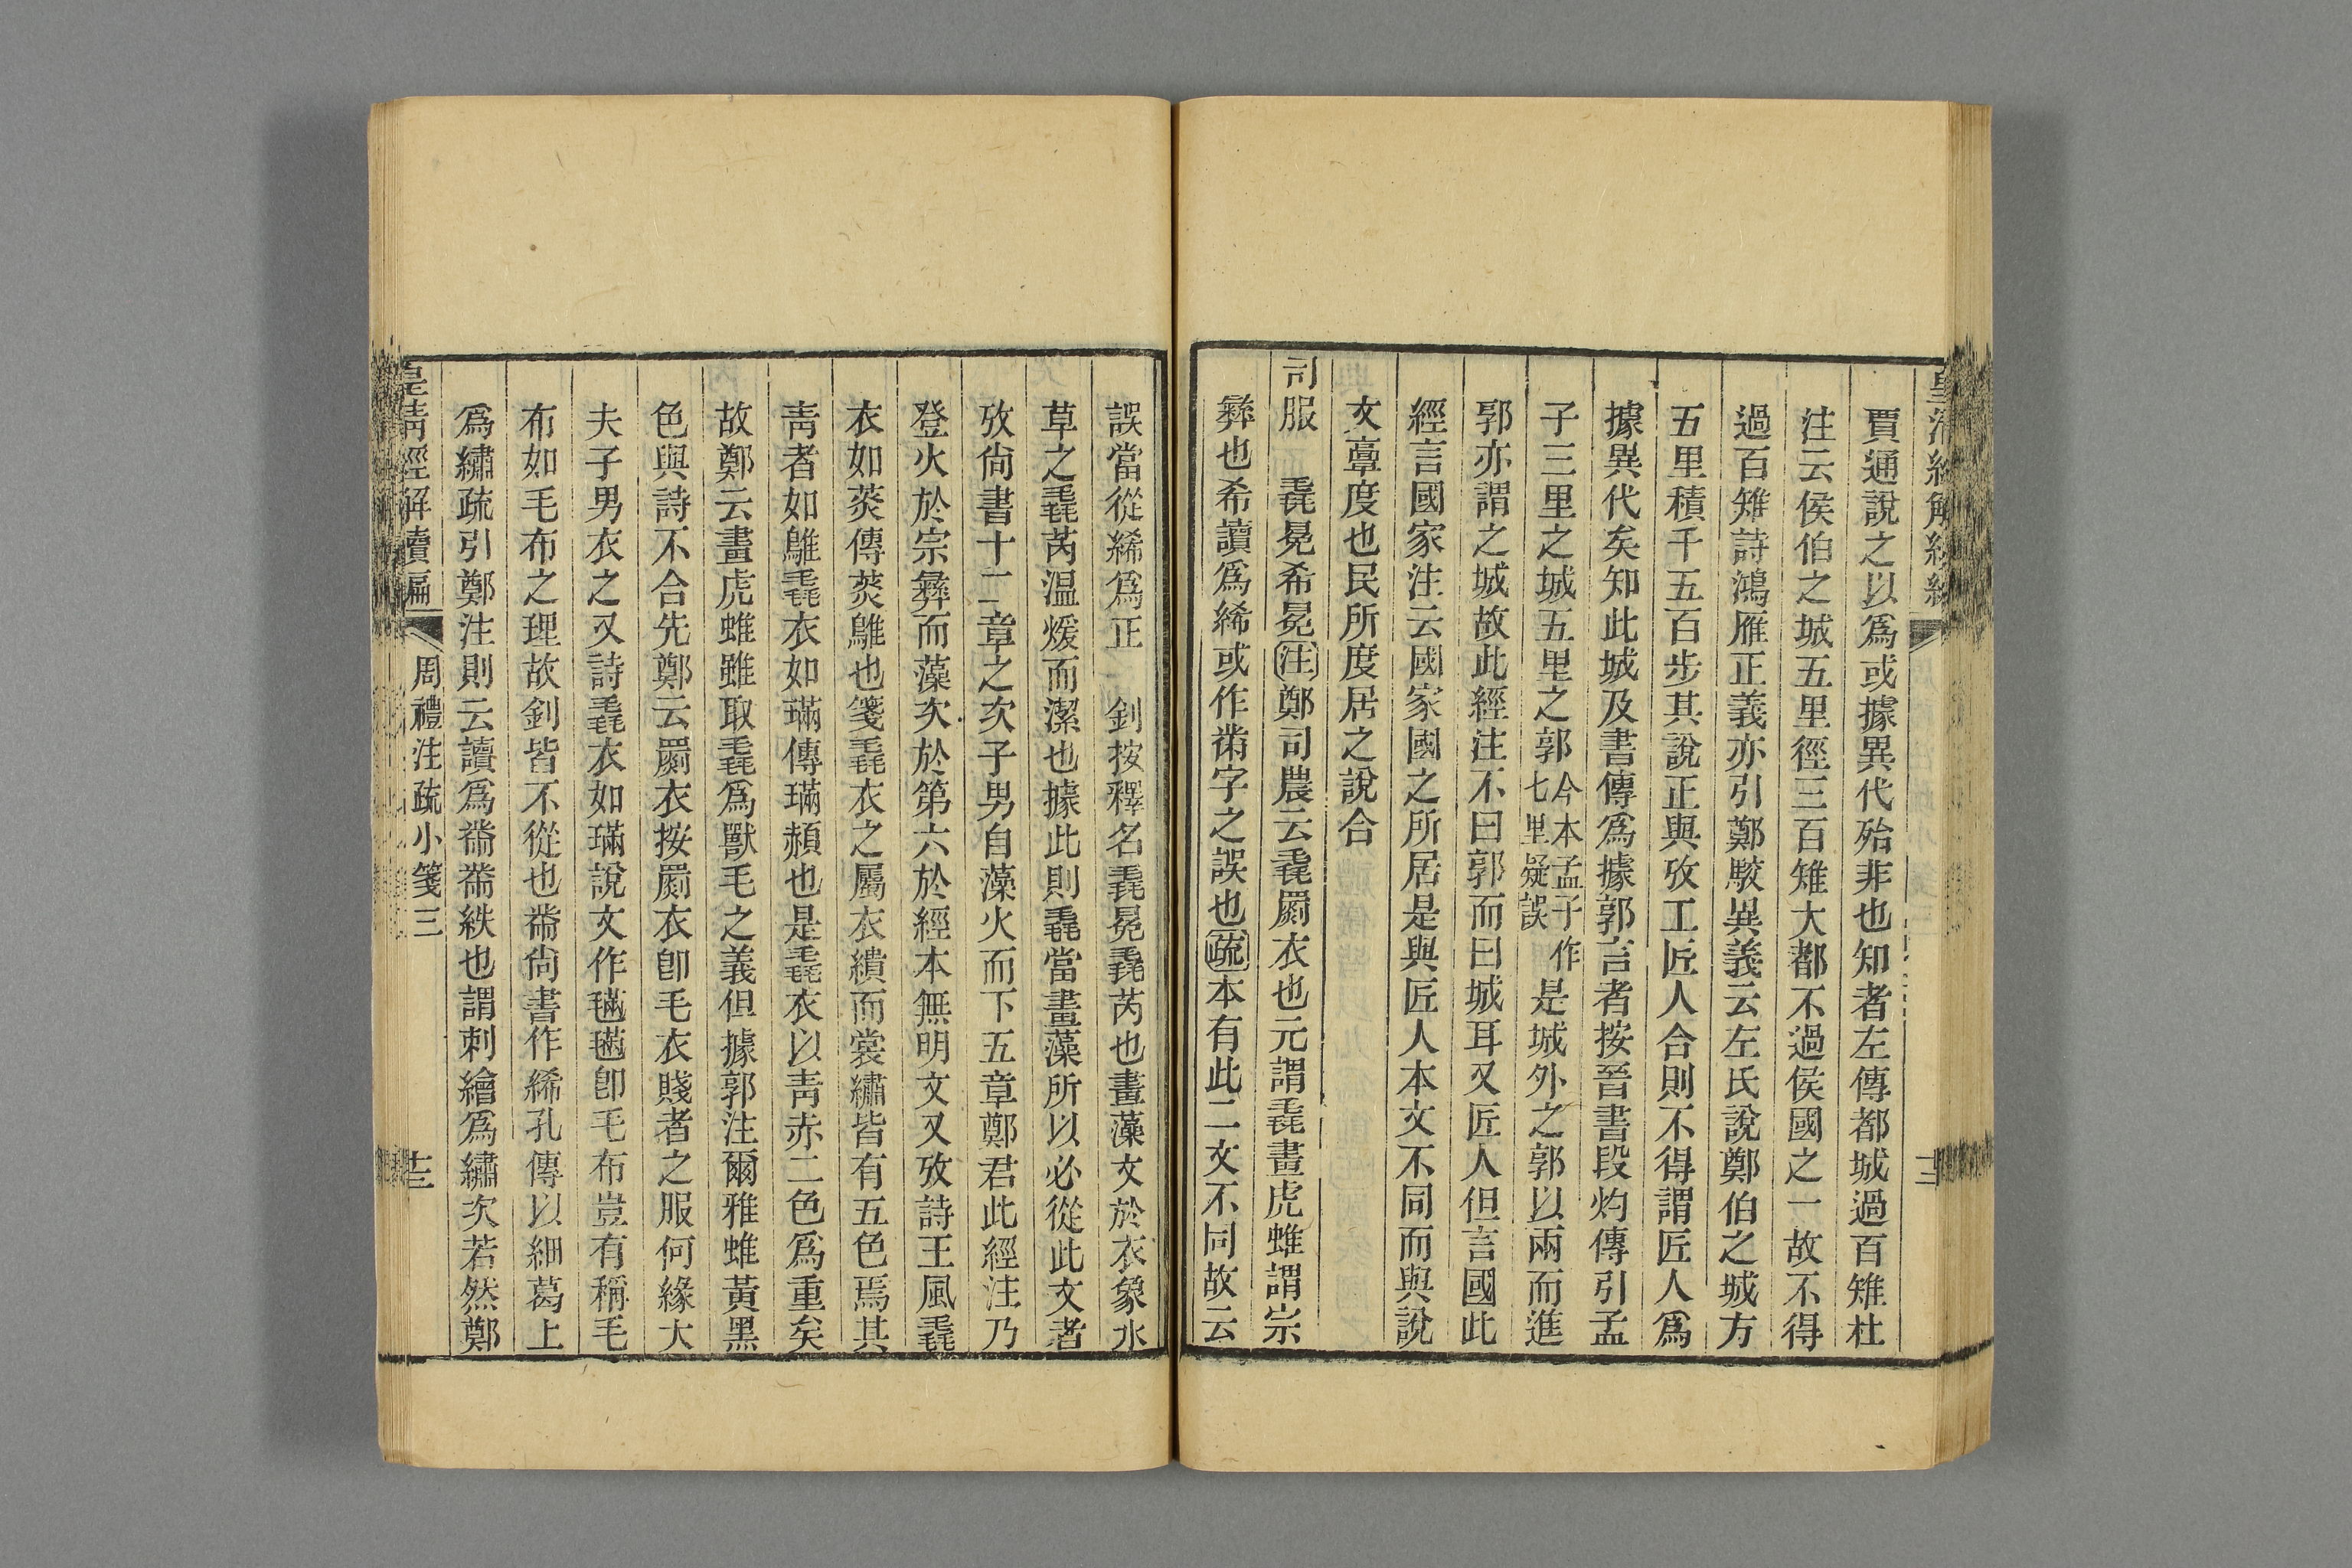 賈通說之以爲或據異代殆非也知者左傳都城過百雉杜
注云侯伯之城五里徑三百雉大都不過侯國之一故不得
過百雉詩鴻雁正義亦引鄭駮異義云左氏說鄭伯之城方
五里積千五百步其說正與攷工匠人合則不得謂匠人爲
據異代矣知此城及書傳爲據郭言者按晉書段灼傳引孟
子三里之城五里之郭今本孟子作七里疑誤是城外之郭以兩而進
郭亦謂之城故此經注不曰郭而曰城耳又匠人但言國此
經言國家注云國家國之所居是與匠人本文不同而與說
文𩫏度也民所度居之說合
司服　毳冕希冕注鄭司農云毳罽衣也元謂毳畫虎蜼謂宗
彝也希讀爲絺或作黹字之誤也疏本有此二文不同故云
誤當從絺爲正　釗按釋名毳冕毳芮也畫藻文於衣象水
草之毳芮温煖而潔也據此則毳當畫藻所以必從此文者
攷尙書十二章之次子男自藻火而下五章鄭君此經注乃
登火於宗彝而藻次於第六於經本無明文又攷詩王風毳
衣如菼傳菼鵻也箋毳衣之屬衣繢而裳繡皆有五色焉其
靑者如鵻毳衣如璊傳璊赬也是毳衣以靑赤二色爲重矣
故鄭云畫虎蜼雖取毳爲獸毛之義但據郭注爾雅蜼黃黑
色與詩不合先鄭云罽衣按罽衣卽毛衣賤者之服何緣大
夫子男衣之又詩毳衣如璊說文作𣯩𣯩卽毛布豈有稱毛
布如毛布之理故釗皆不從也黹尙書作絺孔傳以細葛上
爲繡疏引鄭注則云讀爲黹黹紩也謂刺繒爲繡次若然鄭
皇淸經解續編　周禮注疏小箋三　十三